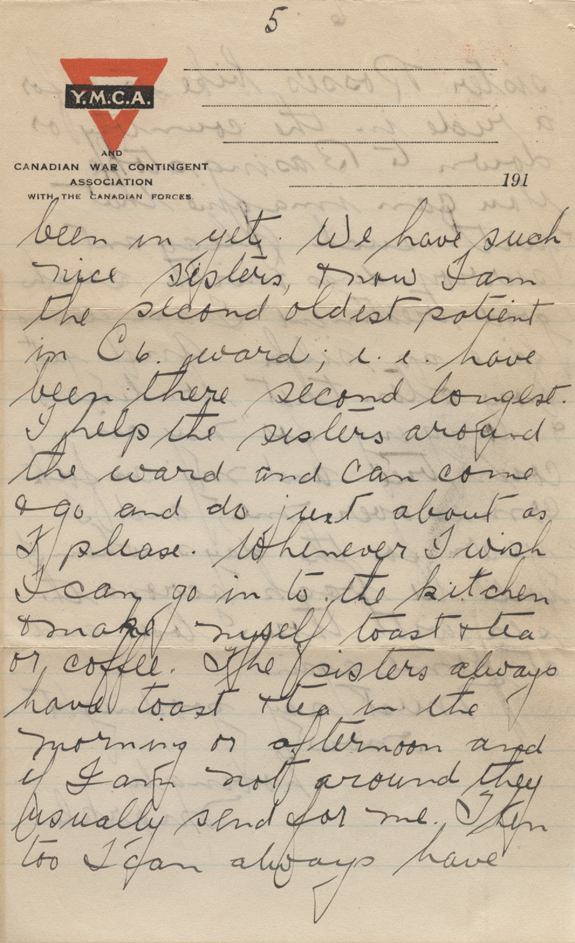 5
Y.M.C.A.
AND
CANADIAN WAR CONTINGENT
ASSOCIATION
WITH THE CANADIAN FORCES
191
been in yet. We have such
nice sisters, & now I am
the second oldest patient
in C6. ward; i. e. have
been there second longest.
I help the sisters around
the ward and can come
& go and do just about as
I please. Whenever I wish
I can go in to the kitchen
& make myself toast & tea
or coffee. The sisters always
have toast & tea in the
morning or afternoon and
if I am not around they
usually send for me. Then
too I can always have